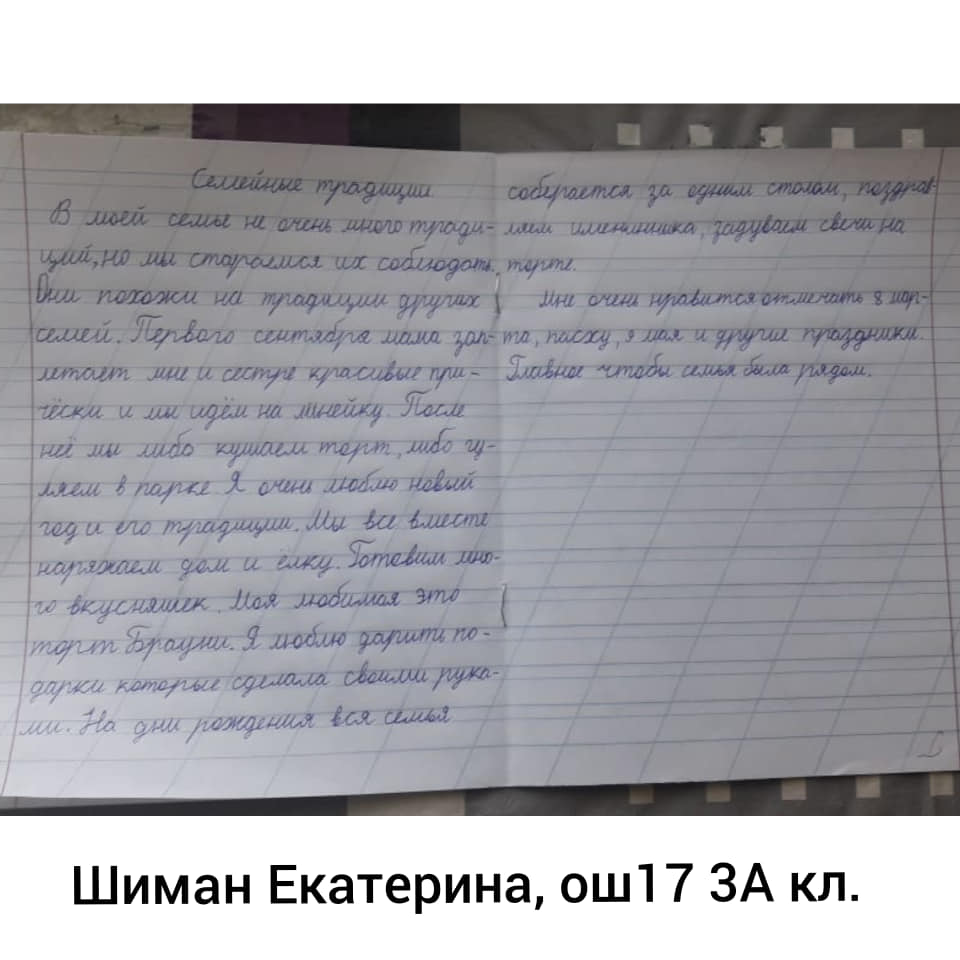 Семейные традиции
В моей семье не очень много тради-
ций, но мы стараемся их соблюдать.
Они похожи на традиции других
семей. Первого сентября мама зап-
летает мне и сестре красивые при-
чёски и мы идём на линейку. После
неё мы либо кушаем торт, либо гу-
ляем в парке. Я очень люблю новый
год и его традиции. Мы все вместе
наряжаем дом и ёлку. Готовим мно-
го вкусняшек. Моя любимая это
торт Брауни. Я люблю дарить по-
дарки которые сделала своими рука-
ми. На дни рождения вся семья
собирается за одним столом, поздрав-
ляем именинника, задуваем свечи на
торте.
Мне очень нравится отмечать 8 мар-
та, пасху, 9 мая и другие праздники.
Главное чтобы семья была рядом.
Шиман Екатерина, ош17 3А кл.